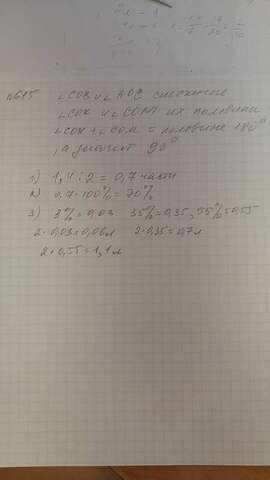 №615 ∠COB и ∠AOC смежные
∠COK и ∠COM их половины
∠COK + ∠COM = половине 180°
, а значит 90°
1) 1,4 : 2 = 0,7 части
2) 0,7 · 100% = 70%
3) 3% = 0,03 35% = 0,35, 55% = 0,55
2 · 0,03 = 0,06л 2 · 0,35 = 0,7л
2 · 0,55 = 1,1л